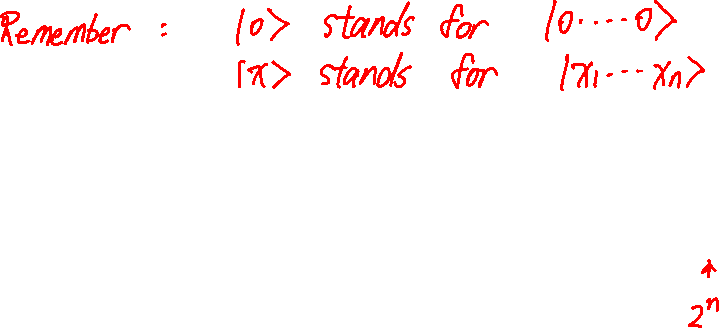 Remember : |0> stands for |0....0>
|x> stands for |x₁...xₙ>
↑
2ⁿ